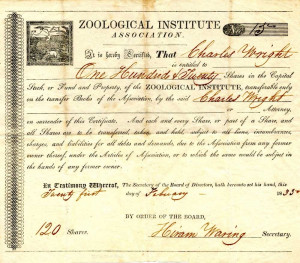 ZOOLOGICAL INSTITUTE
ASSOCIATION.
It is hereby Certified, That Charles Wright
is entitled to
One Hundred & Twenty Shares in the Capital
Stock, or Fund and Property, of the ZOOLOGICAL INSTITUTE, transferable only
on the transfer Books of the Association, by the said Charles Wright
Attorney,
on surrender of this Certificate. And each and every Share, or part of a Share, and
all Shares are to be transferred, taken, and held, subject to all liens, incumbrances,
charges, and liabilities for all debts and demands, due to the Association from any former
owner thereof, under the Articles of Association, or to which the same would be subject in
the hands of any former owner.
In Testimony Whereof, The Secretary of the Board of Directors, hath hereunto set his hand, this
Twenty first day of February 1835
BY ORDER OF THE BOARD,
120 Shares. Hiram Waring Secretary.